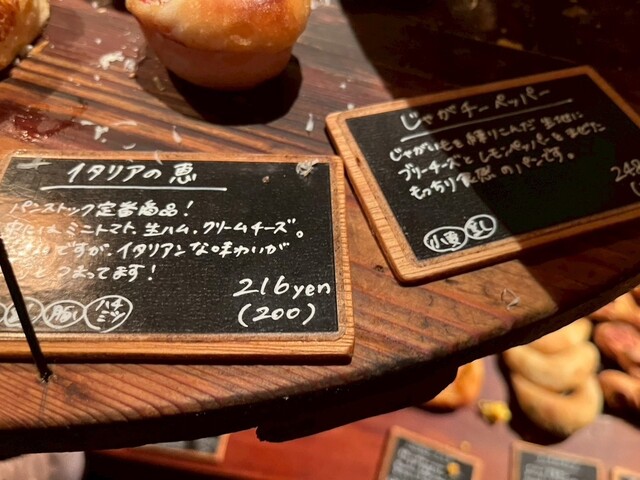 イタリアの恵
パンストック定番商品！
ミニトマト、生ハム、クリームチーズ。
ですが、イタリアンな味わいが
つまってます！
216yen
(200)
豚 ハチミツ
じゃがチーペッパー
じゃがいもを練りこんだ生地に
ブリーチーズとレモンペッパーをまぜた
もっちり食感のパンです。
24
小麦 乳